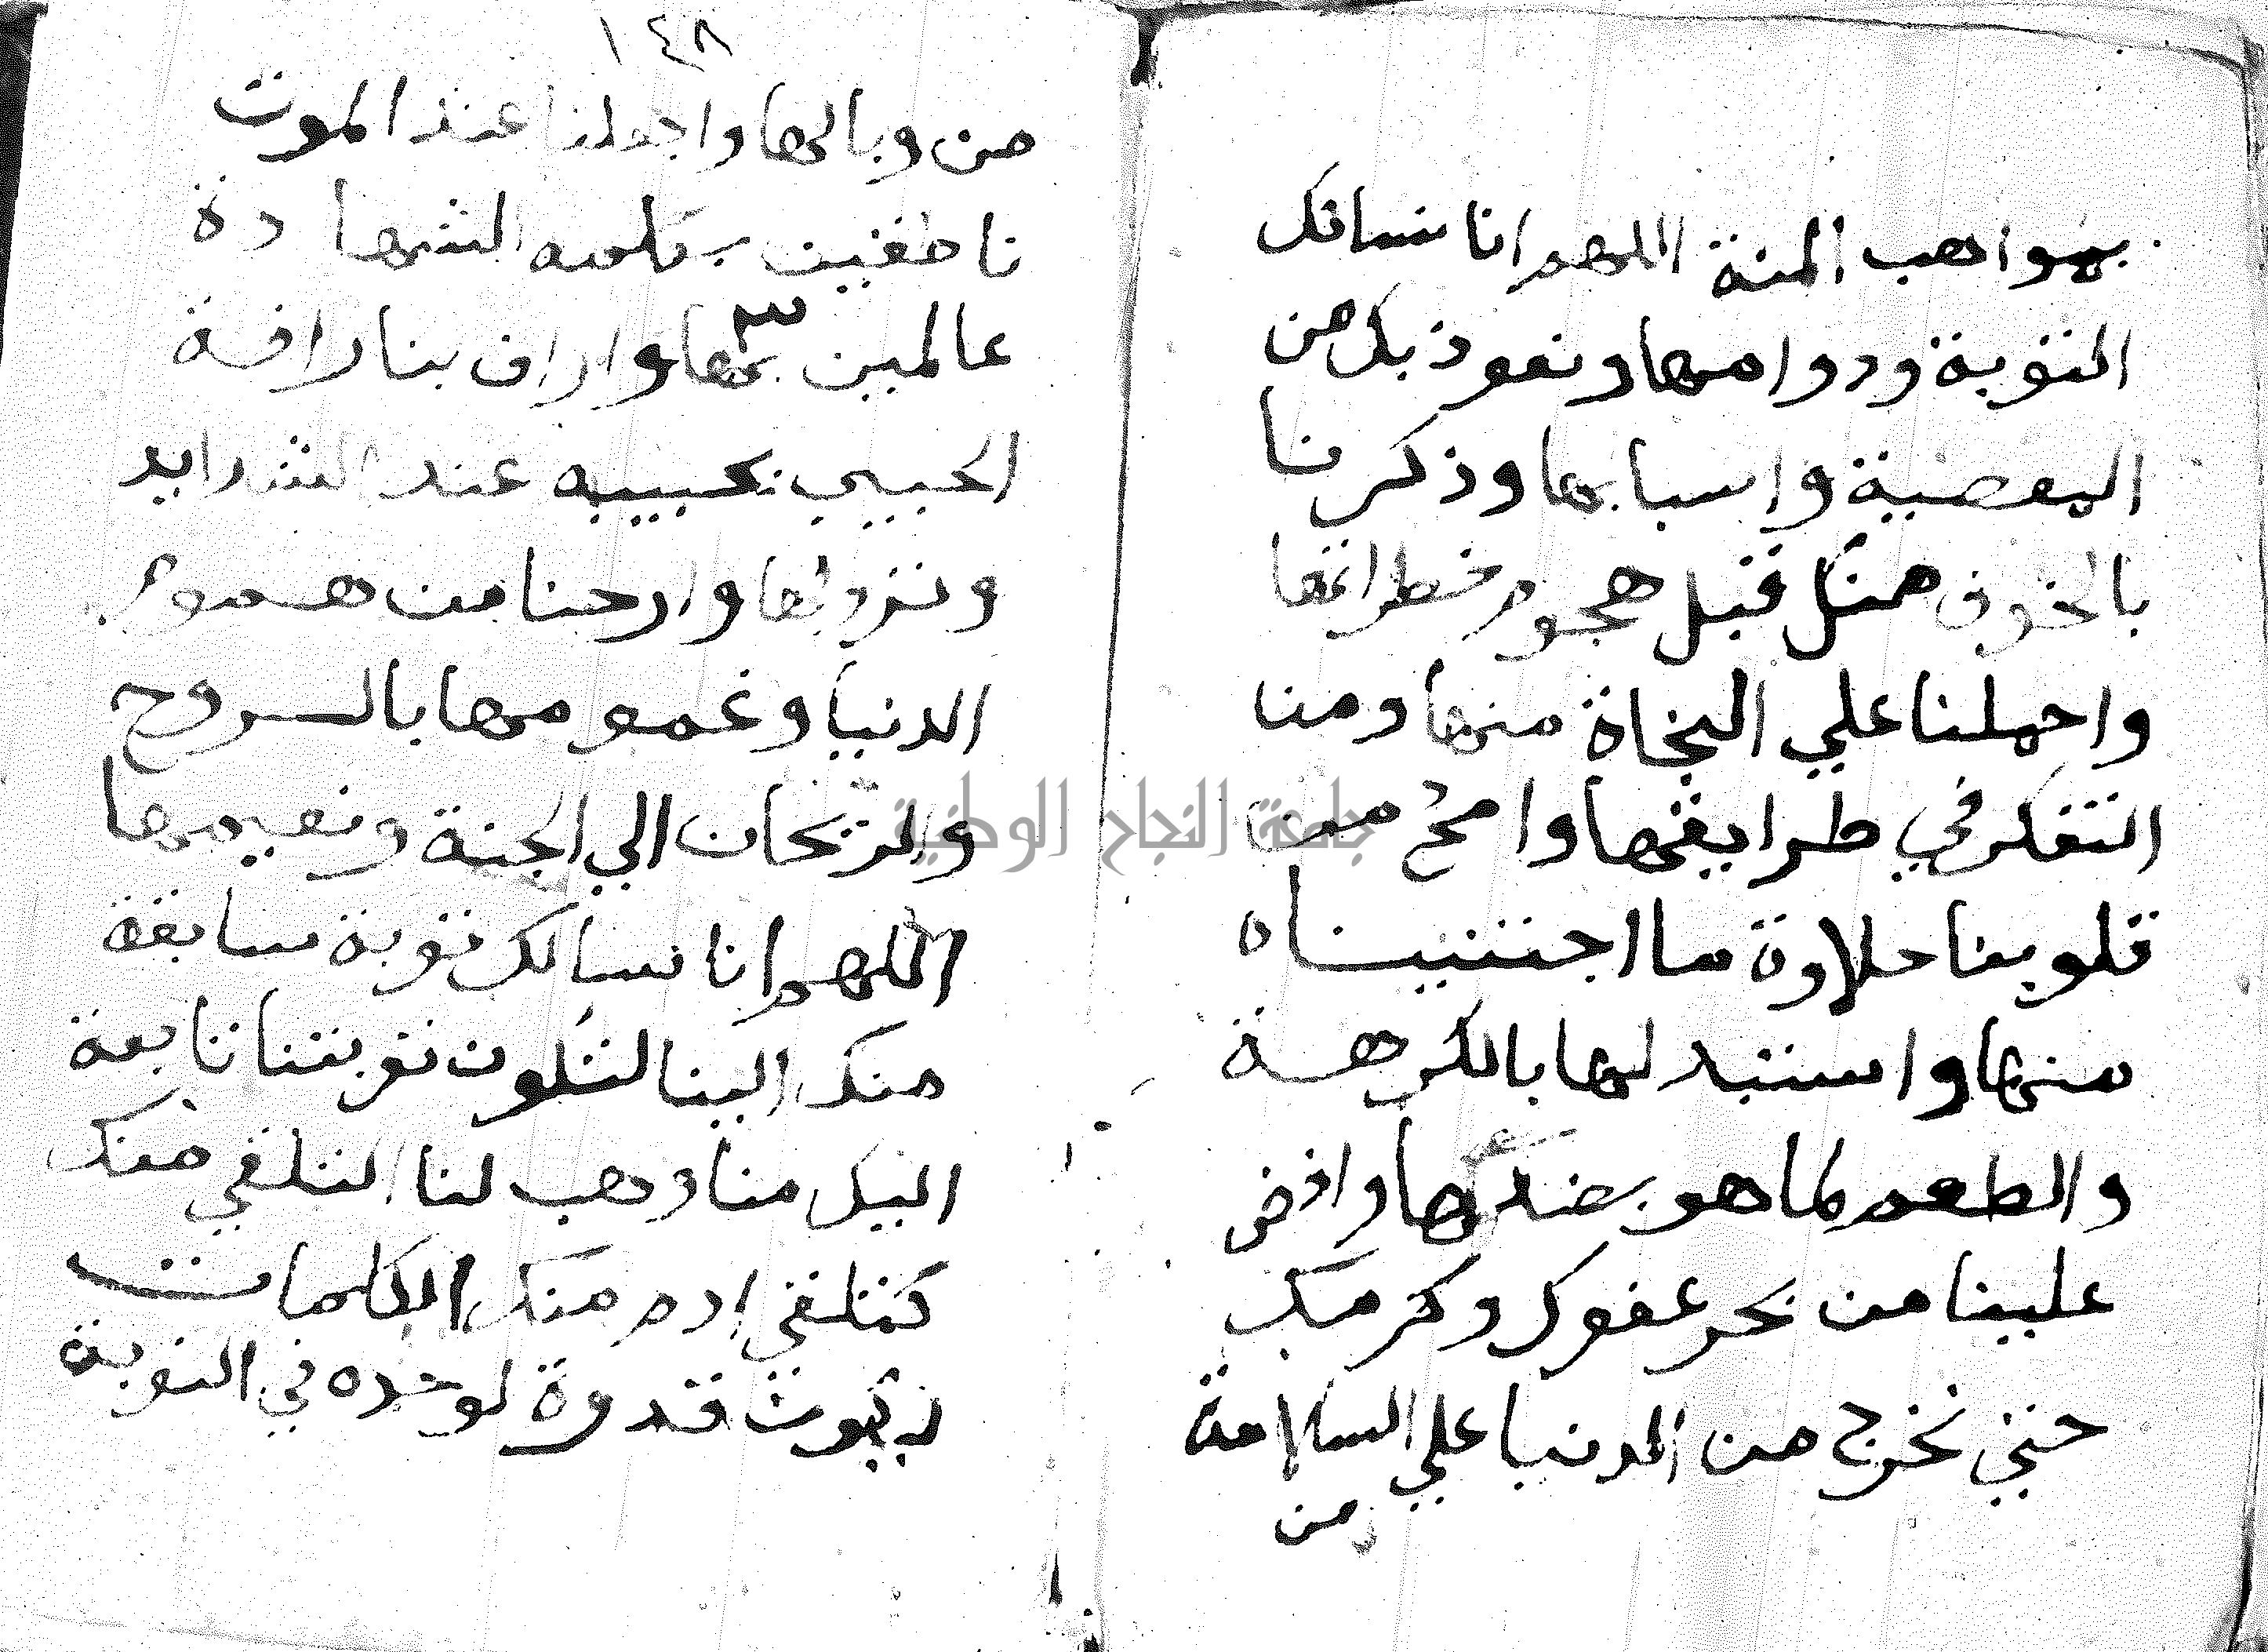 بمواهب المنة اللهم انا نسالك
التوبة ودوامها ونعوذ بك من
المعصية واسبابها وذكرنا
بالخوف منك قبل هجوم خطراتها
واحملنا علي النجاة منها ومن
التفكر في طرايقها وامح من
قلوبنا حلاوة ما اجتنيناه
منها واستبدلها بالكرهة
والطعم لما هو بضدها وافض
علينا من بحر عفوك وكرمك
حتي نخرج من الدنيا علي السلامة
من
١٤٨
من وبالها واجعلنا عند الموت
ناطقين بكلمه الشهادة
عالمين بها واراف بنا رافة
الحبيب بحبيبه عند الشدايد
ونزولها وارحنا من هموم
الدنيا وغمومها بالروح
والريحان الي الجنة ونعيمها
اللهم انا نسالك توبة سابقة
منك الينا لتكون توبتنا تابعة
اليك منا وهب لنا التلقي منك
كتلقي ادم منك الكلمات
ليكون قدوة لولده في التوبة
جامعة النجاح الوطنية